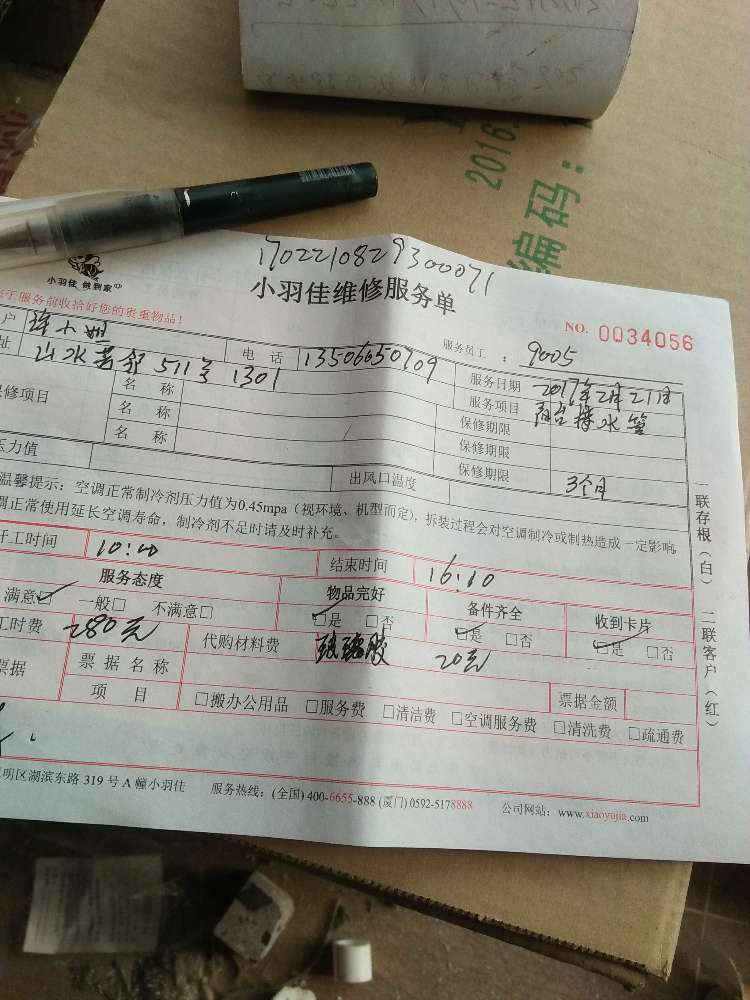 2016
编码：
1702210829300071
小羽佳 做到家
小羽佳维修服务单
于服务前收拾好您的贵重物品！
NO. 0034056
户
电 话 13506050709
服务员工 ： 9005
址 山水芳邻 511号 1301
服务日期 2017年2月21日
修项目
名 称
服务项目 阳台接水管
名 称
保修期限
名 称
保修期限
保修期限 3个月
压力值
出风口温度
温馨提示：空调正常制冷剂压力值为0.45mpa（视环境、机型而定），拆装过程会对空调制冷或制热造成一定影响
调正常使用延长空调寿命，制冷剂不足时请及时补充。
开工时间 10:40
结束时间 16:10
服务态度
物品完好
备件齐全
收到卡片
满意☑ 一般□ 不满意□
☑是 □否
☑是 □否
☑是 □否
工时费 280元
代购材料费 玻璃胶 20元
票据
票 据 名 称
票据金额
项 目
□搬办公用品 □服务费 □清洁费 □空调服务费 □清洗费 □疏通费
一联存根（白） 二联客户（红）
明区湖滨东路 319 号 A 幢小羽佳 服务热线：(全国) 400-6655-888 (厦门) 0592-5178888 公司网站：www.xiaoyujia.com